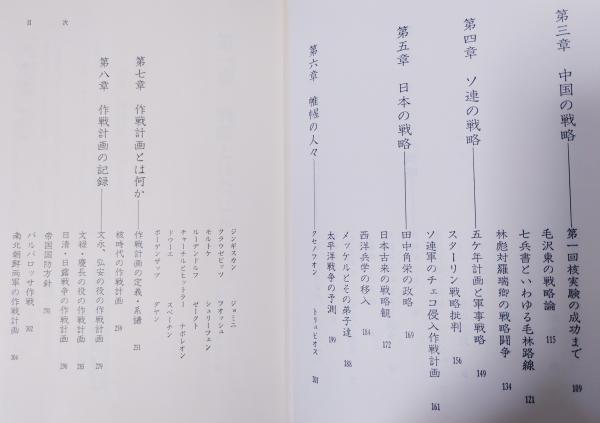 第三章 中国の戦略
第一回核実験の成功まで 109
毛沢東の戦略論 115
七兵書といわゆる毛林路線 121
林彪対羅瑞卿の戦略闘争 134
第四章 ソ連の戦略
五ケ年計画と軍事戦略 149
スターリン戦略批判 156
ソ連軍のチェコ侵入作戦計画 161
第五章 日本の戦略
田中角栄の政略 169
日本古来の戦略観 172
西洋兵学の移入 184
メッケルとその弟子達 188
太平洋戦争の予測 199
第六章 帷幄の人々
クセノフォン トリュビオス
ジンギスカン ジョミニ
クラウゼビッツ フオッシュ
モルトケ シュリーフェン
ルーデンドルフ ゼークト
チャーチルとヒットラー ナポレオン
ドウーエ スペーチン
ボーゲンザップ ダヤン
第七章 作戦計画とは何か
作戦計画の定義・系譜 231
核時代の作戦計画 250
第八章 作戦計画の記録
文永、弘安の役の作戦計画
文禄・慶長の役の作戦計画 285
日清・日露戦争の作戦計画 290
帝国国防方針
バルバロッサ作戦 302
南北朝鮮両軍の作戦計画
目 次